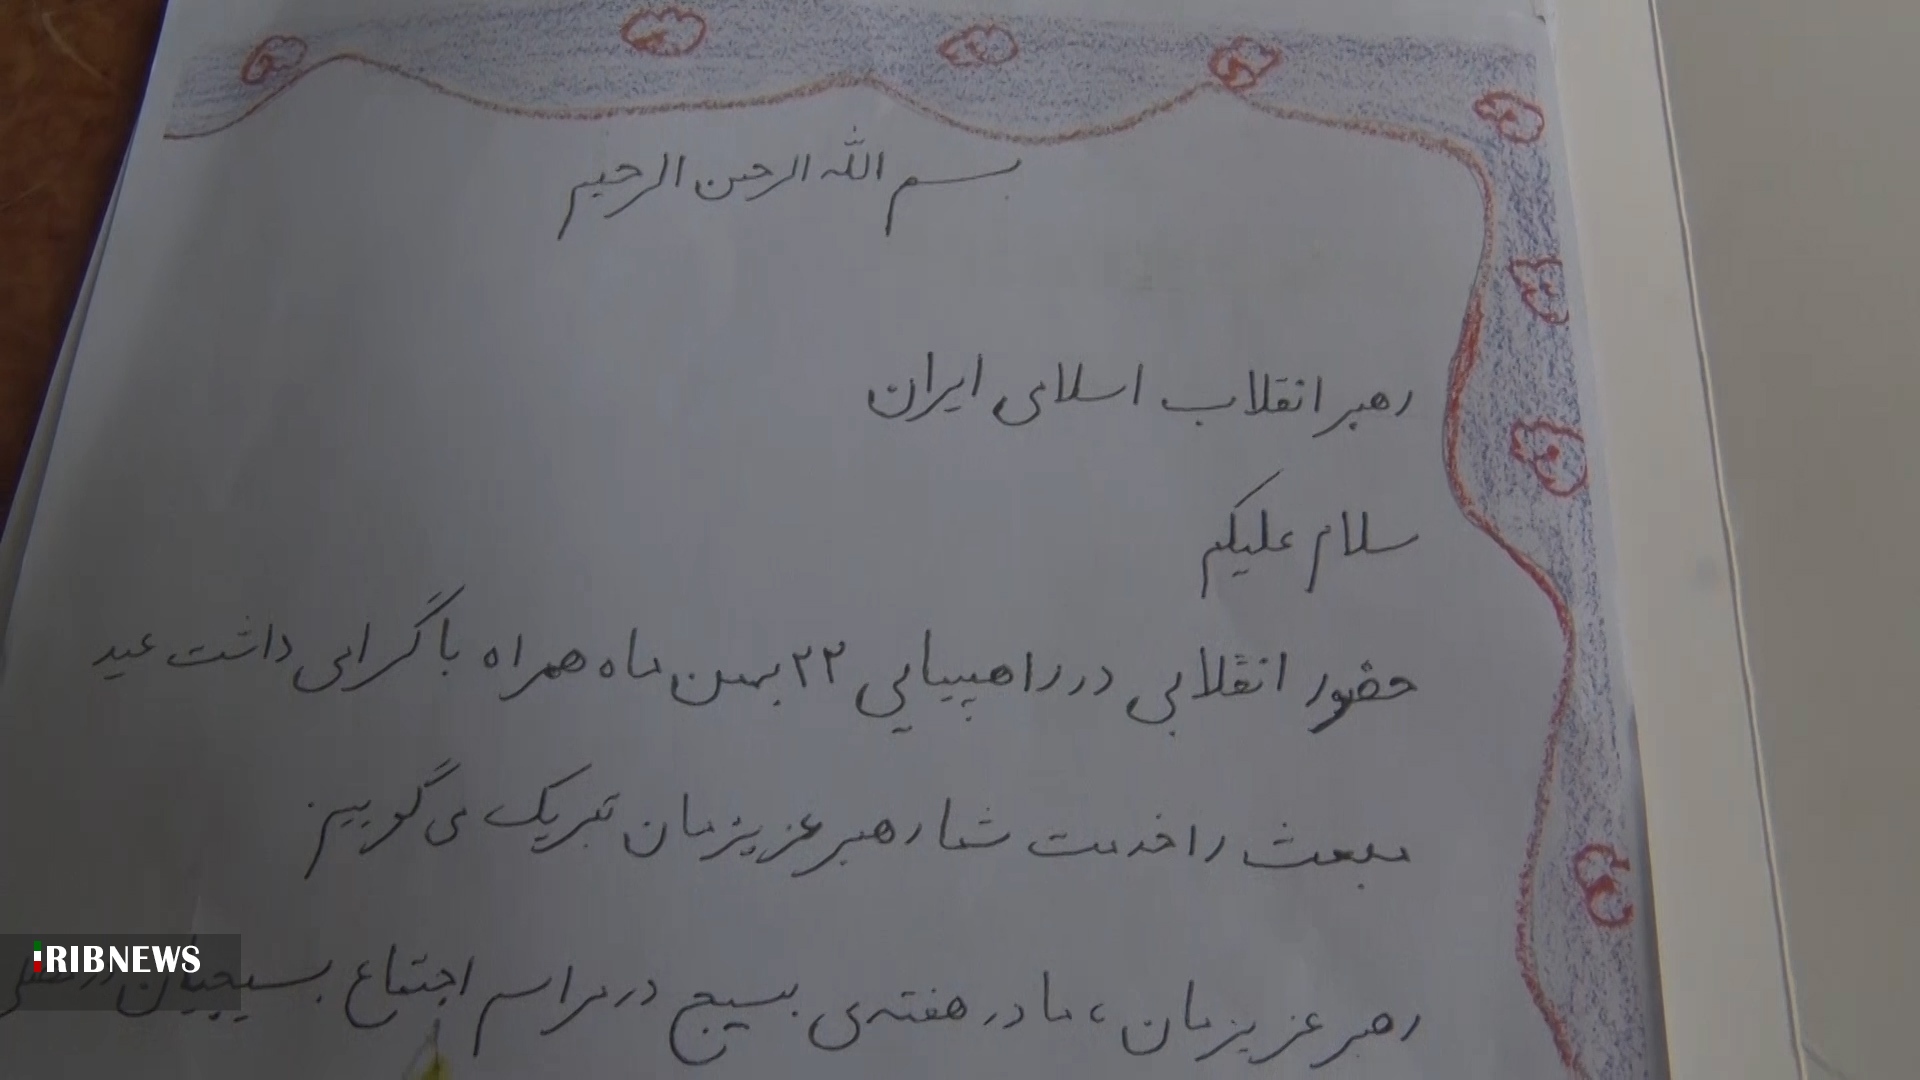 بسم الله الرحمن الرحیم
رهبر انقلاب اسلامی ایران
سلام علیکم
حضور انقلابی در راهپیمایی ۲۲ بهمن ماه همراه با گرامی داشت عید
مبعث را خدمت شما رهبر عزیزمان تبریک می گوییم
رهبر عزیزمان ، ما در هفته ی بسیج در مراسم اجتماع بسیجیان در
IRIBNEWS